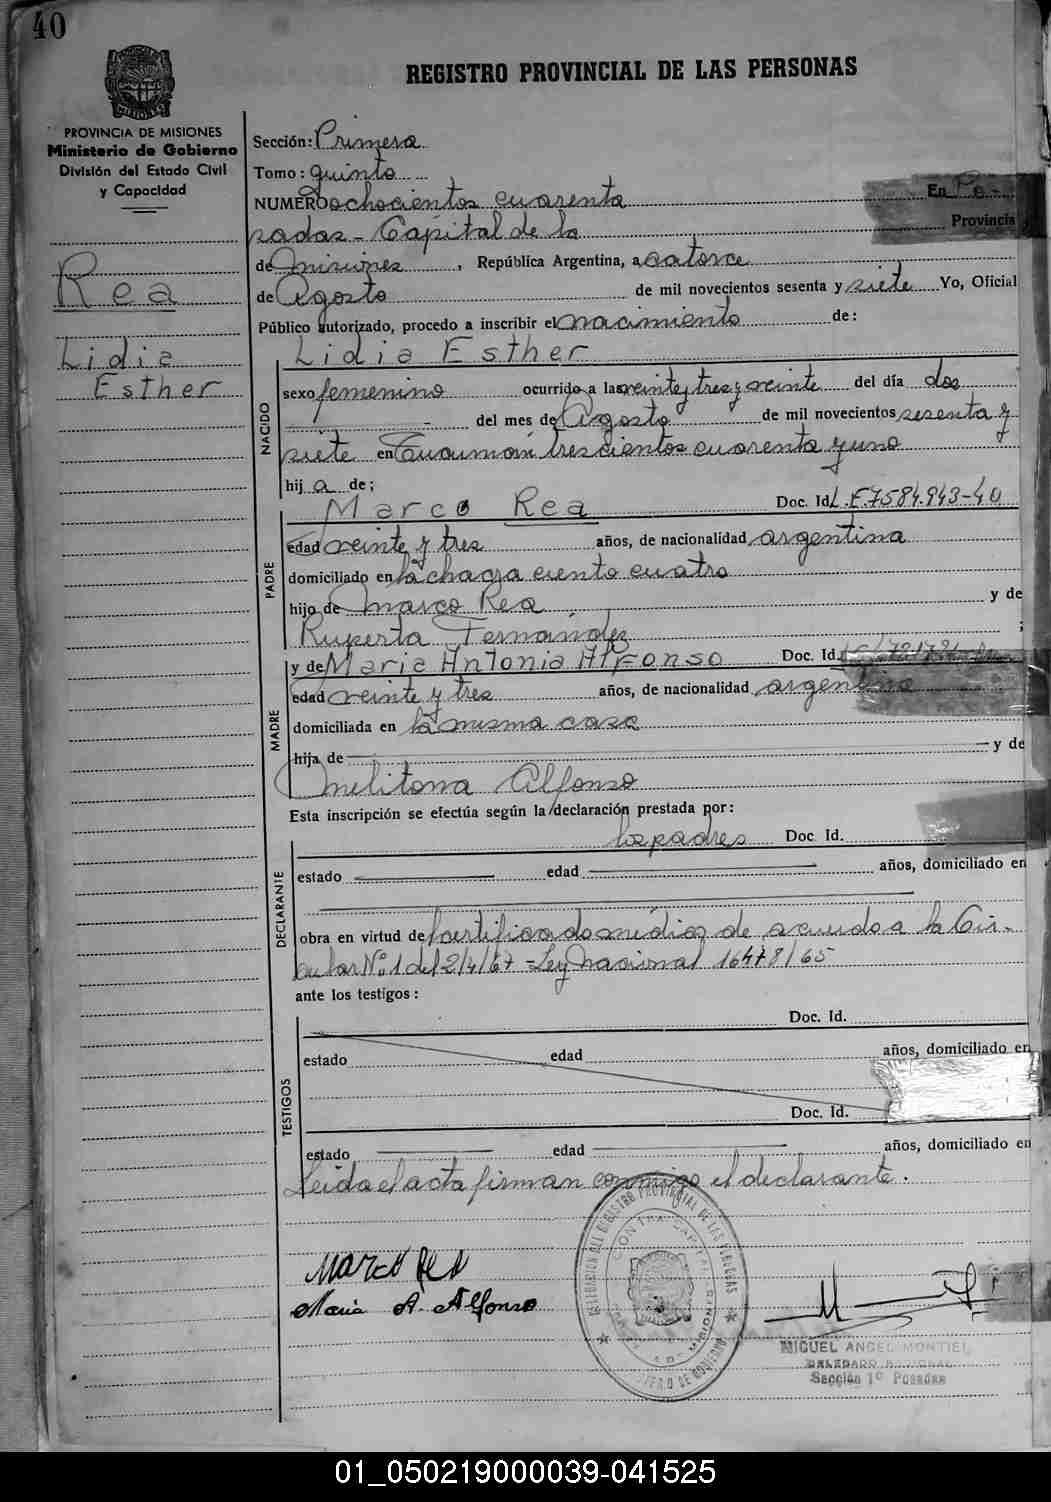 40
REGISTRO PROVINCIAL DE LAS PERSONAS
PROVINCIA DE MISIONES
Ministerio de Gobierno
División del Estado Civil
y Capacidad
Rea
Lidia
Esther
Sección: Primera
Tomo: quinto
NUMERO ochocientos cuarenta En Po-
sadas - Capital de la Provincia
de Misiones, República Argentina, a catorce
de Agosto de mil novecientos sesenta y siete Yo, Oficial
Público autorizado, procedo a inscribir el nacimiento de:
Lidia Esther
NACIDO
sexo femenino ocurrido a las veinte y tres y veinte del día dos
del mes de Agosto de mil novecientos sesenta y
siete en Tucumán trescientos cuarenta y uno
hija de;
Marco Rea Doc. Id. L.E. 7584.943-40
PADRE
edad veinte y tres años, de nacionalidad argentina
domiciliado en la chacra ciento cuatro
hijo de Marco Rea y de
Ruperta Fernández ;
MADRE
y de Maria Antonia Alfonso Doc. Id.
edad veinte y tres años, de nacionalidad argentina
domiciliada en la misma casa
hija de y de
Melitona Alfonso
Esta inscripción se efectúa según la declaración prestada por:
los padres Doc. Id.
DECLARANTE
estado edad años, domiciliado en
obra en virtud de certificado médico de acuerdo a la Cir-
cular Nº 1 del 2/4/67 - Ley Nacional 16478/65
ante los testigos:
Doc. Id.
TESTIGOS
estado edad años, domiciliado en
Doc. Id.
estado edad años, domiciliado en
Leida el acta firman conmigo el declarante.
Marco Rea
Maria A. Alfonso
MIGUEL ANGEL MONTIEL
Sección 1º Posadas
01_050219000039-041525